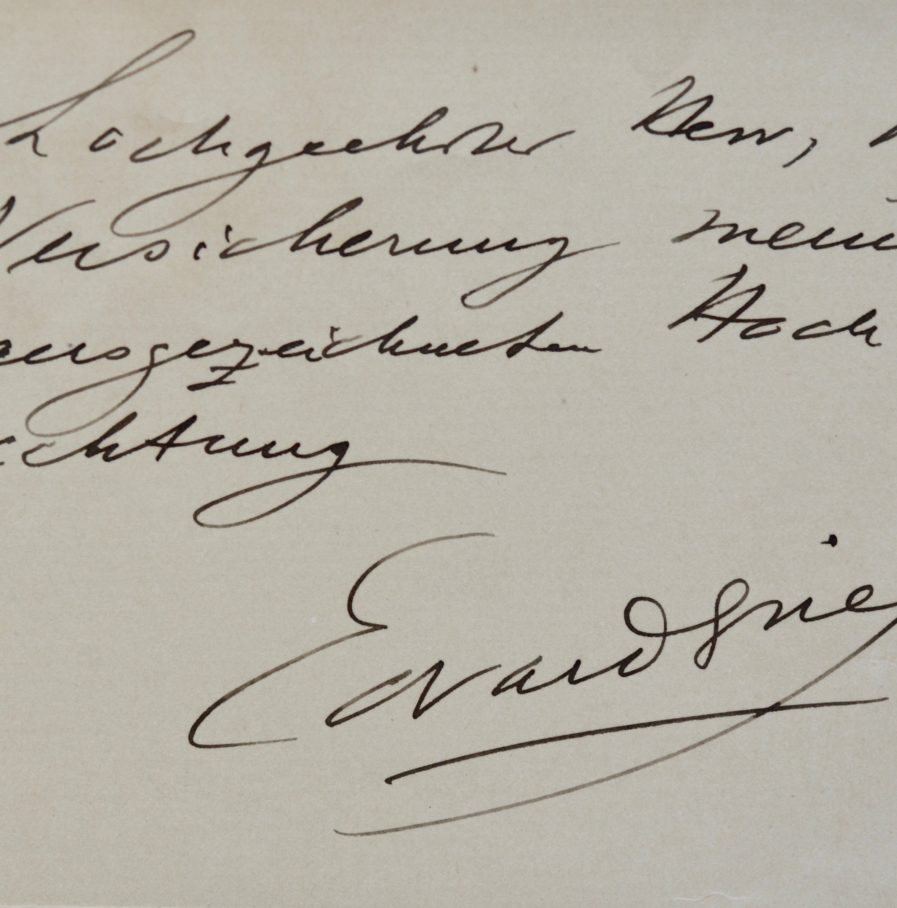 hochgeehrter Herr, 
Versicherung mein
ausgezeichneten Hoch
achtung
Edvard Grieg